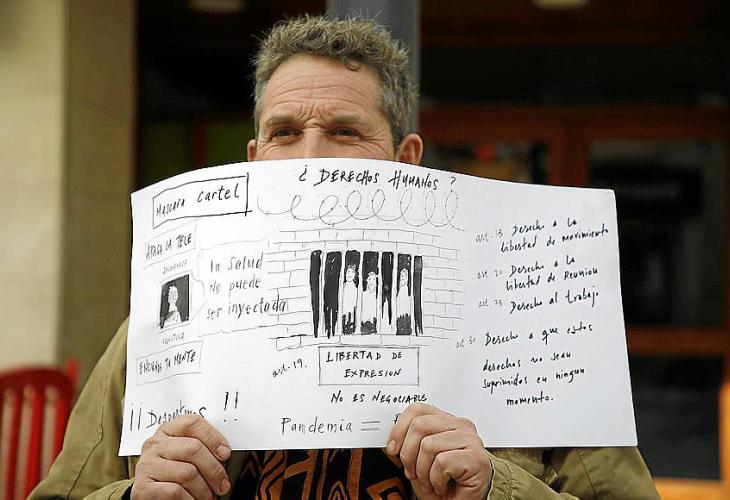 ¿ DERECHOS HUMANOS ?
MASCARA CARTEL
APAGA LA TELE
la Salud
NO puede
ser inyectada
ENCIENDE TU MENTE
¡¡ Despertemos !!
art. 19.
LIBERTAD DE
EXPRESION
NO ES NEGOCIABLE
Pandemia =
art. 13 Derecho a la
libertad de movimiento
art. 20 Derecho a la
libertad de Reunion
art 23 Derecho al trabajo.
art 30 Derecho a que estos
derechos no sean
suprimidos en ningun
momento.